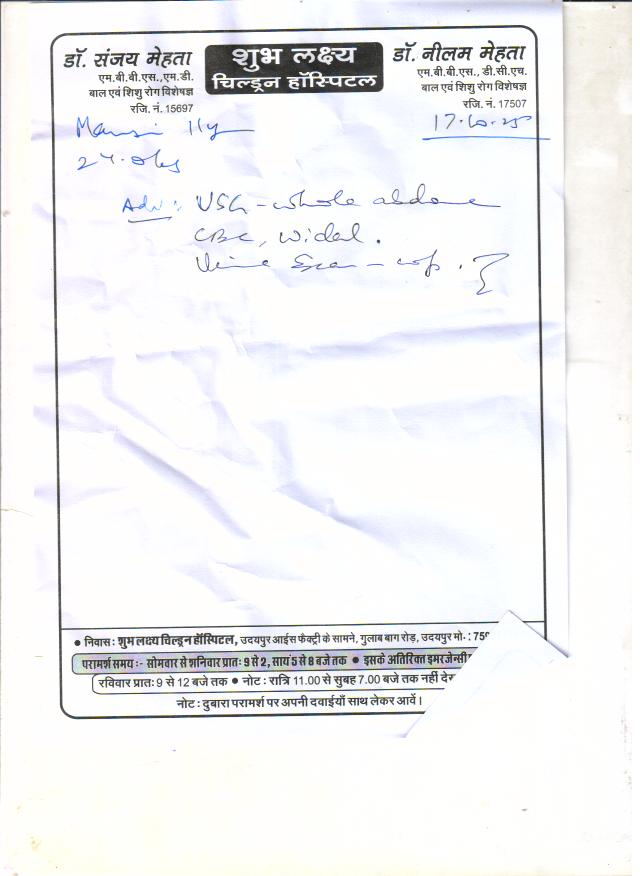 डॉ. संजय मेहता
एम.बी.बी.एस.,एम.डी.
बाल एवं शिशु रोग विशेषज्ञ
रजि. नं. 15697
शुभ लक्ष्य
चिल्ड्रन हॉस्पिटल
डॉ. नीलम मेहता
एम.बी.बी.एस., डी.सी.एच.
बाल एवं शिशु रोग विशेषज्ञ
रजि. नं. 17507
Mansi 11y
17.10.25
Adv: USG - whole abdome
CBC, Widal.
Urine
● निवास : शुभ लक्ष्य चिल्ड्रन हॉस्पिटल, उदयपुर आईस फैक्ट्री के सामने, गुलाब बाग रोड़, उदयपुर मो. : 759
परामर्श समय :- सोमवार से शनिवार प्रातः 9 से 2, सायं 5 से 8 बजे तक ● इसके अतिरिक्त इमरजेन्सी
रविवार प्रातः 9 से 12 बजे तक ● नोट : रात्रि 11.00 से सुबह 7.00 बजे तक नहीं
नोट : दुबारा परामर्श पर अपनी दवाईयाँ साथ लेकर आवें।